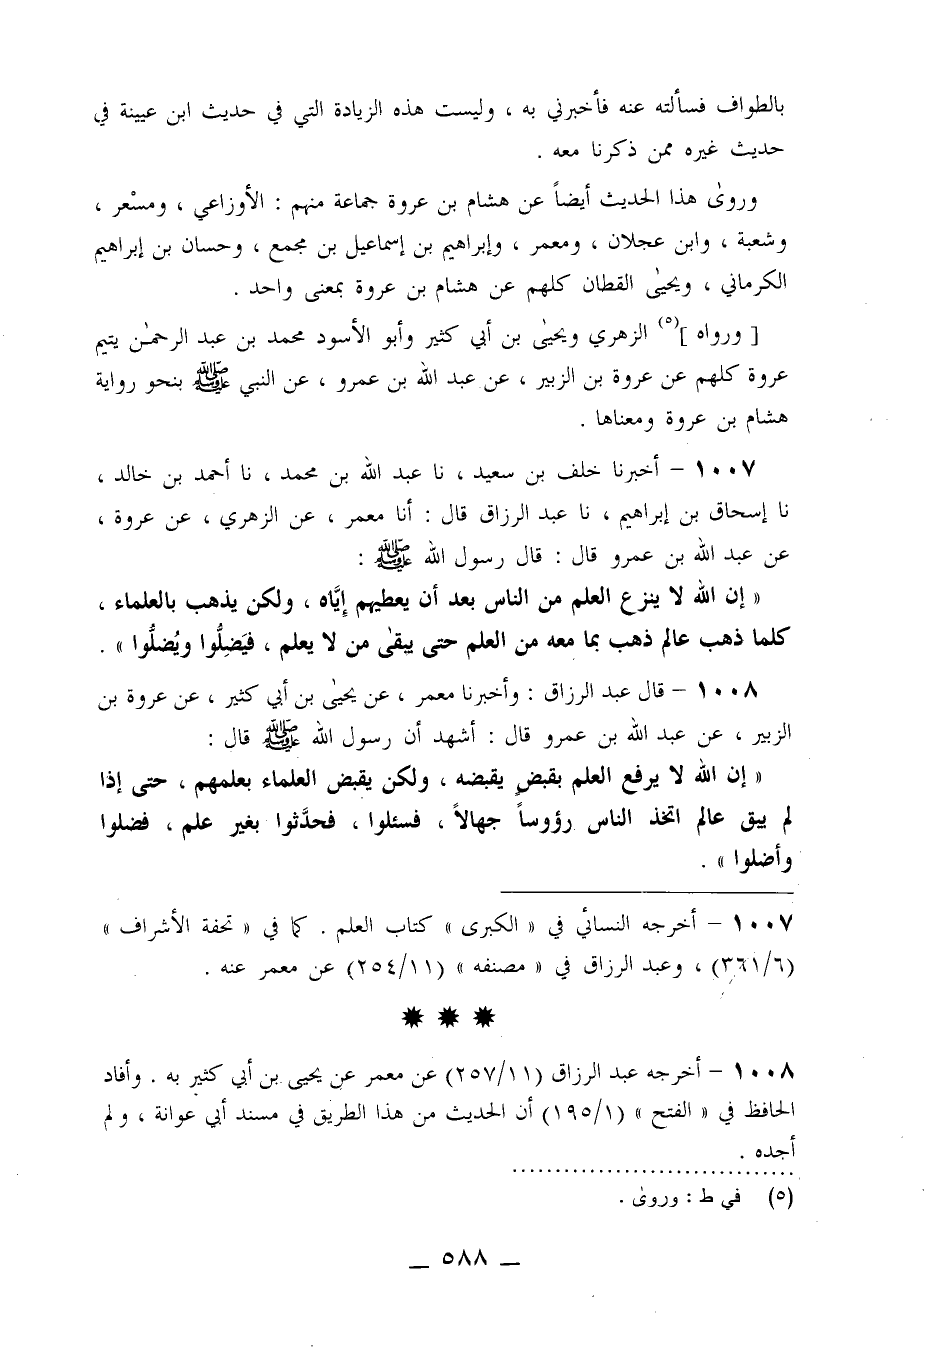 بالطواف فسألته عنه فأخبرني به ، وليست هذه الزيادة التي في حديث ابن عيينة في
حديث غيره ممن ذكرنا معه .
وروىٰ هذا الحديث أيضاً عن هشام بن عروة جماعة منهم : الأوزاعي ، ومسْعر ،
وشعبة ، وابن عجلان ، ومعمر ، وإبراهيم بن إسماعيل بن مجمع ، وحسان بن إبراهيم
الكرماني ، ويحيىٰ القطان كلهم عن هشام بن عروة بمعنى واحد .
[ ورواه ](٥) الزهري ويحيىٰ بن أبي كثير وأبو الأسود محمد بن عبد الرحمـٰن يتيم
عروة كلهم عن عروة بن الزبير ، عن عبد الله بن عمرو ، عن النبي ﷺ بنحو رواية
هشام بن عروة ومعناها .
١٠٠٧ – أخبرنا خلف بن سعيد ، نا عبد الله بن محمد ، نا أحمد بن خالد ،
نا إسحاق بن إبراهيم ، نا عبد الرزاق قال : أنا معمر ، عن الزهري ، عن عروة ،
عن عبد الله بن عمرو قال : قال رسول الله ﷺ :
« إن الله لا ينزع العلم من الناس بعد أن يعطيهم إيَّاه ، ولكن يذهب بالعلماء ،
كلما ذهب عالم ذهب بما معه من العلم حتى يبقىٰ من لا يعلم ، فيَضِلُّوا ويُضلُّوا » .
١٠٠٨ – قال عبد الرزاق : وأخبرنا معمر ، عن يحيىٰ بن أبي كثير ، عن عروة بن
الزبير ، عن عبد الله بن عمرو قال : أشهد أن رسول الله ﷺ قال :
« إن الله لا يرفع العلم بقبضٍ يقبضه ، ولكن يقبض العلماء بعلمهم ، حتى إذا
لم يبق عالم اتخذ الناس رؤوساً جهالاً ، فسئلوا ، فحدَّثوا بغير علم ، فضلوا
وأضلوا » .
١٠٠٧ – أخرجه النسائي في « الكبرى » كتاب العلم . كما في « تحفة الأشراف »
(٣٦١/٦) ، وعبد الرزاق في « مصنفه » (٢٥٤/١١) عن معمر عنه .
١٠٠٨ – أخرجه عبد الرزاق (٢٥٧/١١) عن معمر عن يحيى بن أبي كثير به . وأفاد
الحافظ في « الفتح » (١٩٥/١) أن الحديث من هذا الطريق في مسند أبي عوانة ، ولم
أجده .
(٥) في ط : وروىٰ .
ـ ٥٨٨ ـ